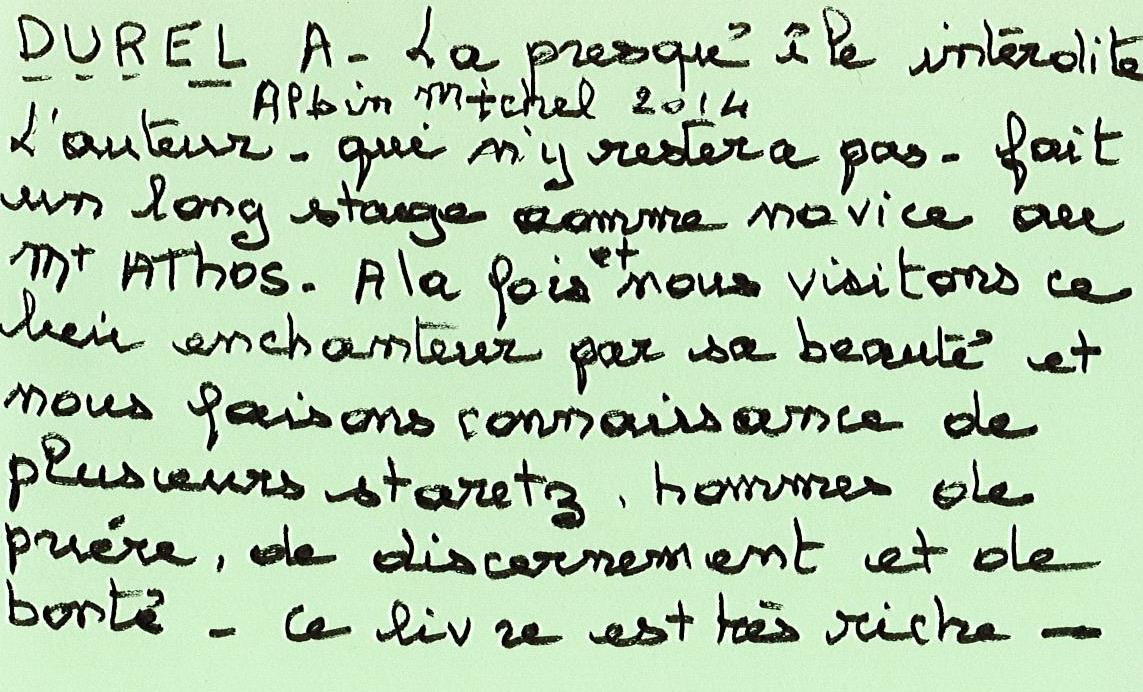 DUREL A - La presqu'île interdite
Albin Michel 2014
L'auteur - qui n'y restera pas - fait
un long stage comme novice au
Mt Athos. A la fois et nous visitons ce
lieu enchanteur par sa beauté et
nous faisons connaissance de
plusieurs staretz, hommes de
prière, de discernement et de
bonté - Ce livre est très riche -